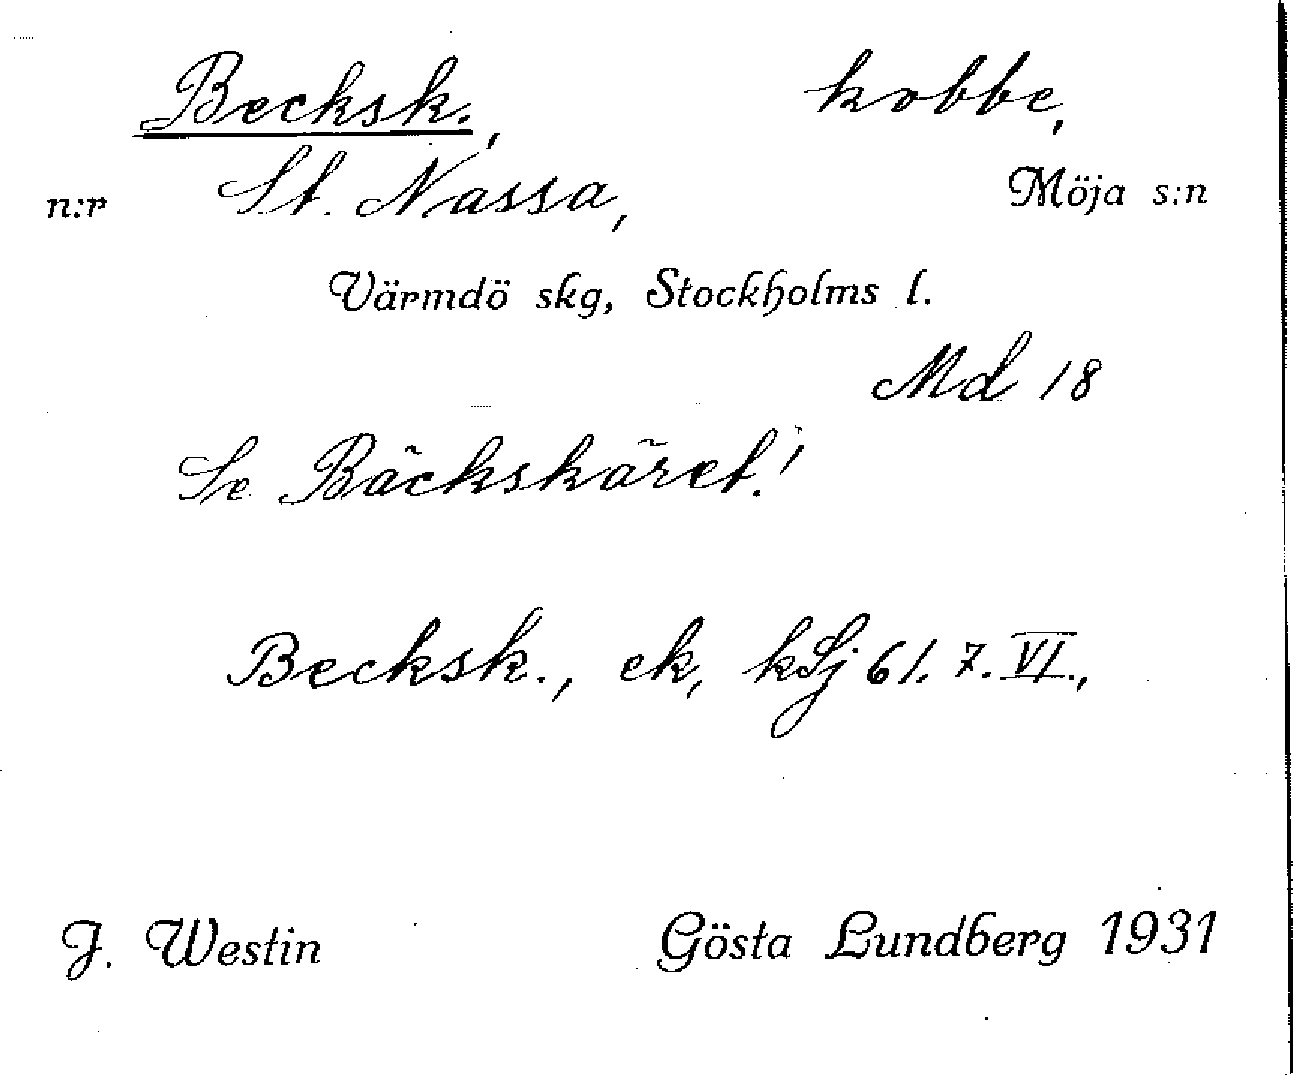 Becksk., kobbe,
n:r St. Nassa, Möja s:n
Värmdö skg, Stockholms l.
Md 18
Se Bäckskäret!
Becksk., ek, kSj 61. 7. VI.,
J. Westin Gösta Lundberg 1931